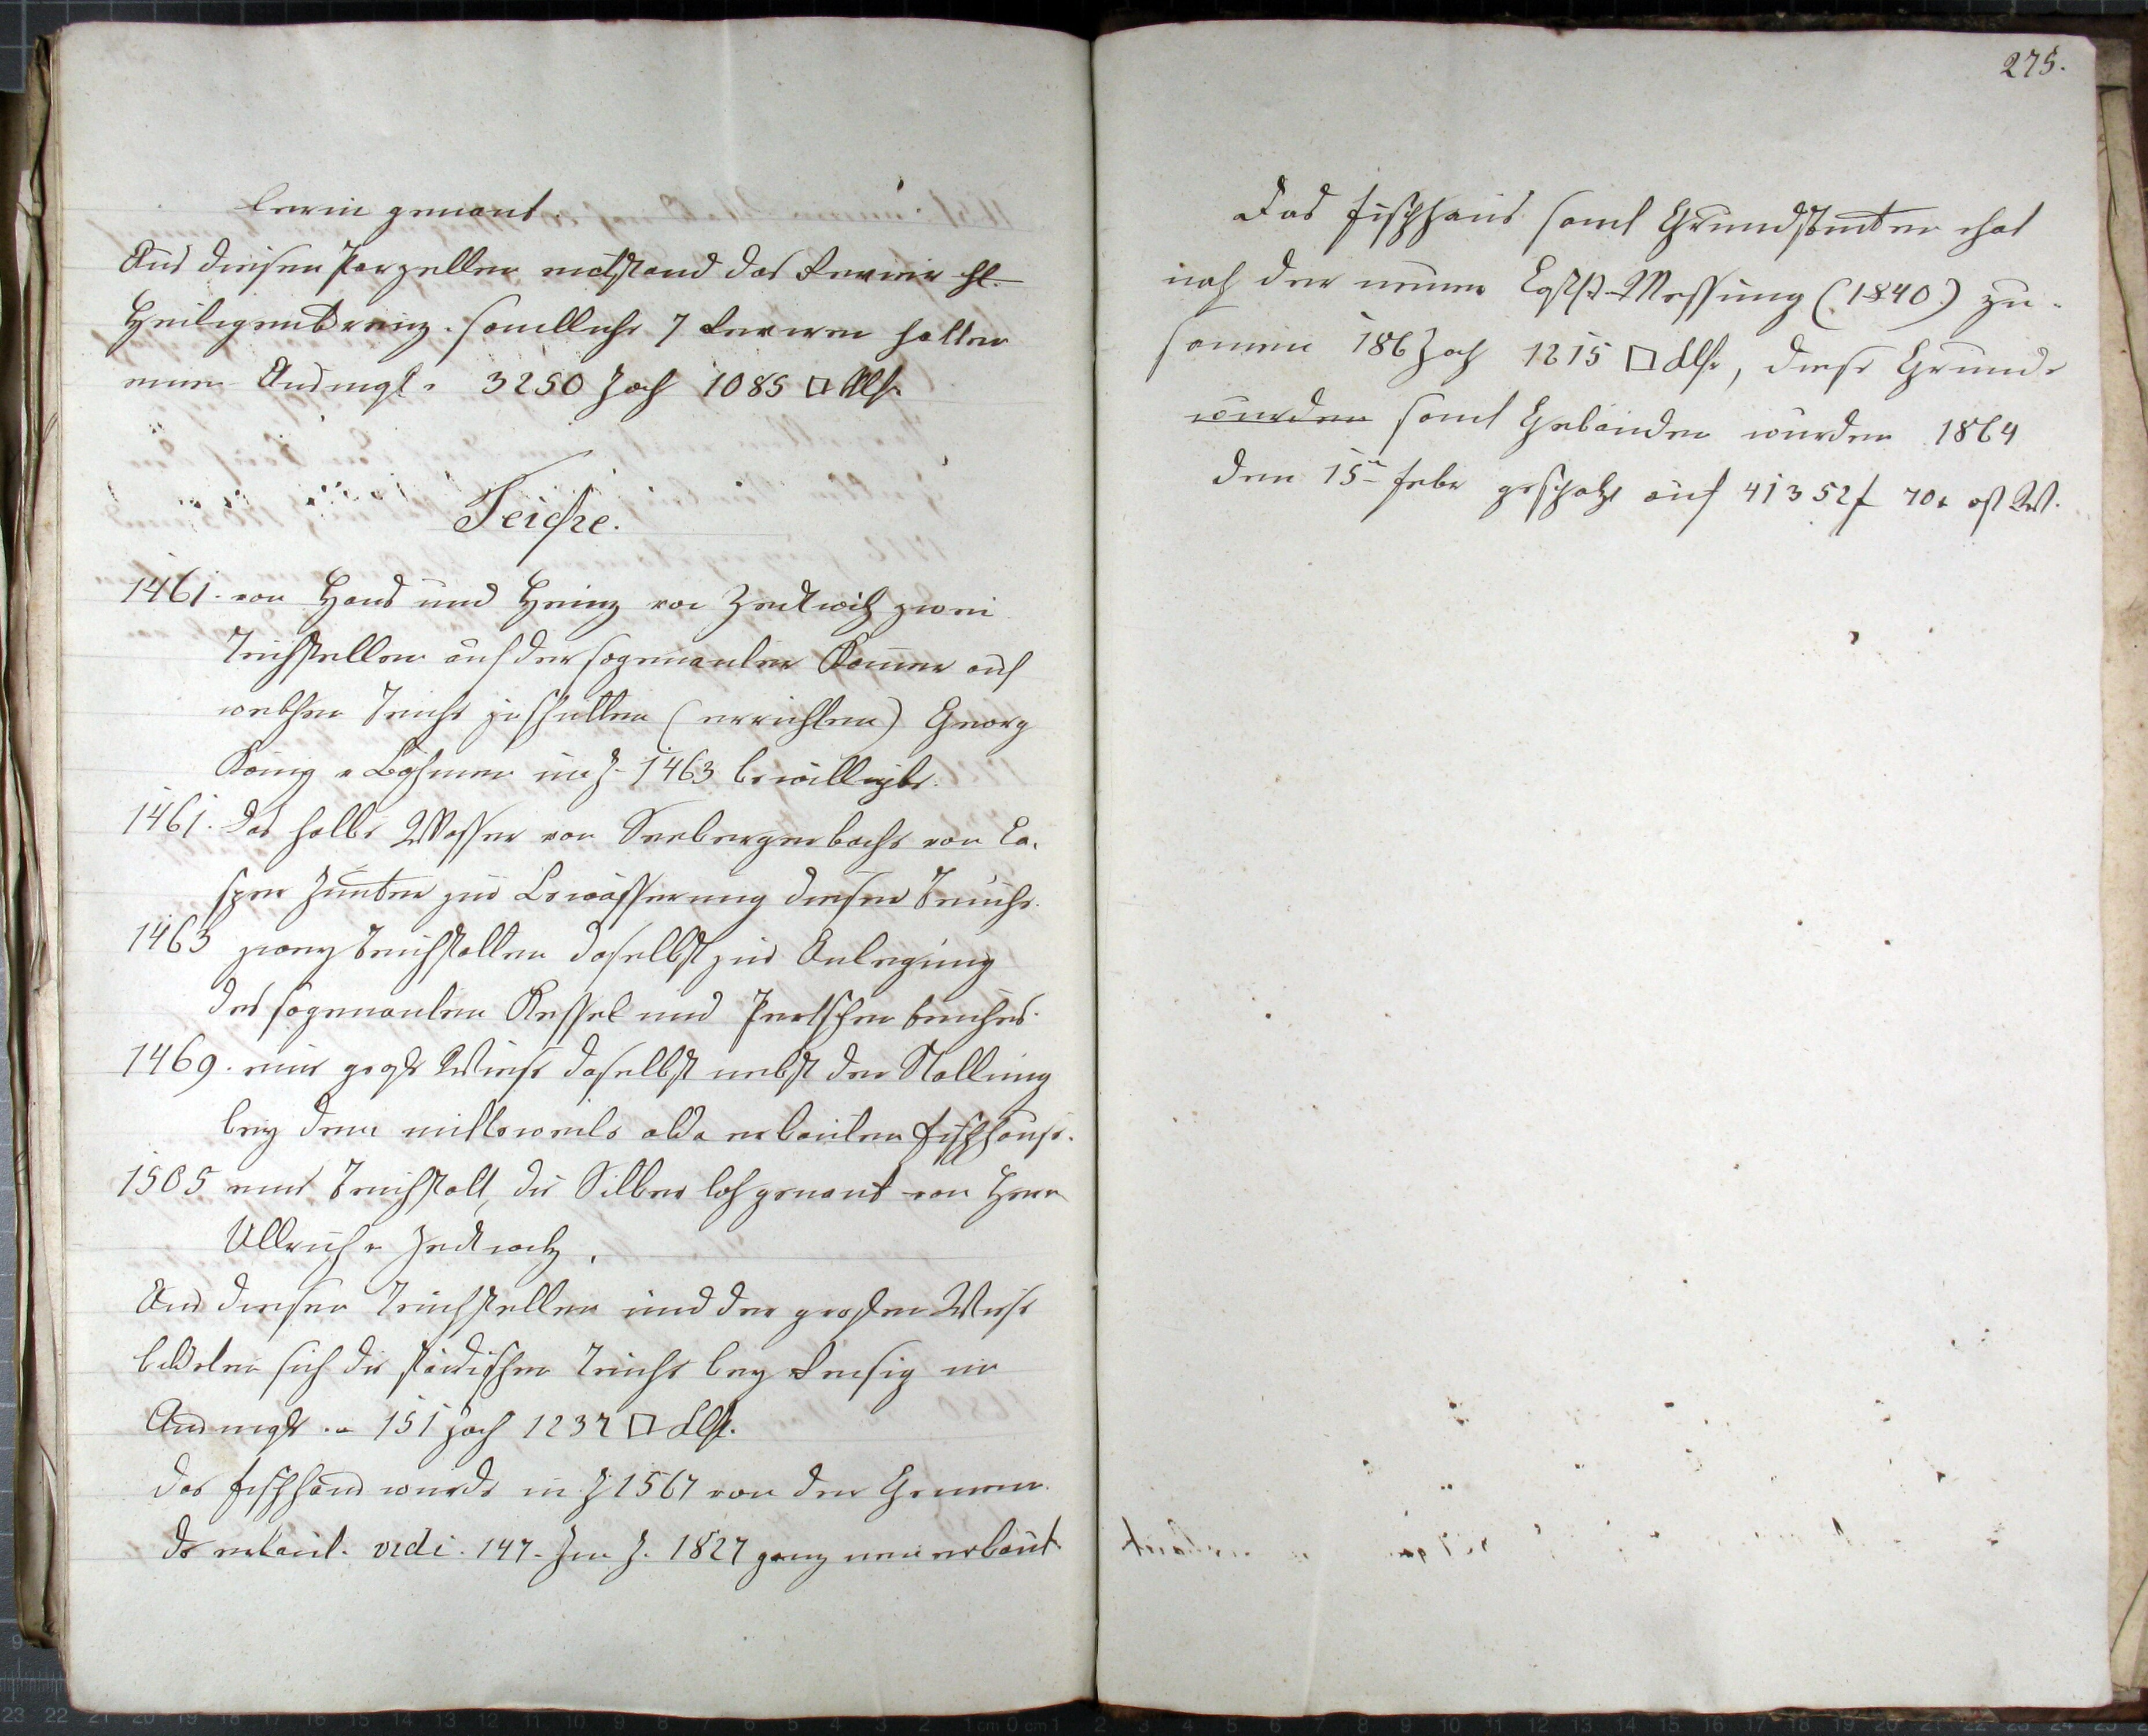 lerin genant.
Aus diesen Parzellen entstand das Revier hl.
Heiligenkreuz. sämtliche 7 Reviere halten
einen Ausmaß v 3250 Joch 1085 □ Klft.
Teiche.
1461. von Hans und Heinz von Zedtwitz zwei
Teichstellen auf der sogenanten Kammer auf
welchen Teiche zu schütten (errichten) Georg
König v Böhmen im J. 1463 bewilligte.
1461. Das halbe Wasser von Seebergerbache von Ca-
sper Junker zur Bewässerung dieser Teiche.
1463 zwey Teichstatten daselbst zur Anlegung
des sogenanten Kessel und Teiches.
1469. eine große Wiese daselbst nebst der Stallung
bey dem mittlerweile alda erbauten Fischhause.
1505 eine Teichstatt, die Silberloh genant von Herr
Ullrich v Zedtwitz.
Aus diesen Teichstellen und der großen Wiese
bildeten sich die städtischen Teiche bey Rensig im
Ausmaße v 151 Joch 1237 □ Klft.
das Fischhaus wurde im J 1567 von der Gemein-
de erbaut. vidi. 147. Im J. 1827 ganz neu erbaut
275.
Das Fischhaus samt Grundstücken hat
nach der neuen Messung (1840) zu-
sammen 186 Joch 1215 □ Klft, diese Gründe
wurden samt Gebäuden wurden 1864
den 15n Febr geschätzt auf 41352 f 70 x öst W.